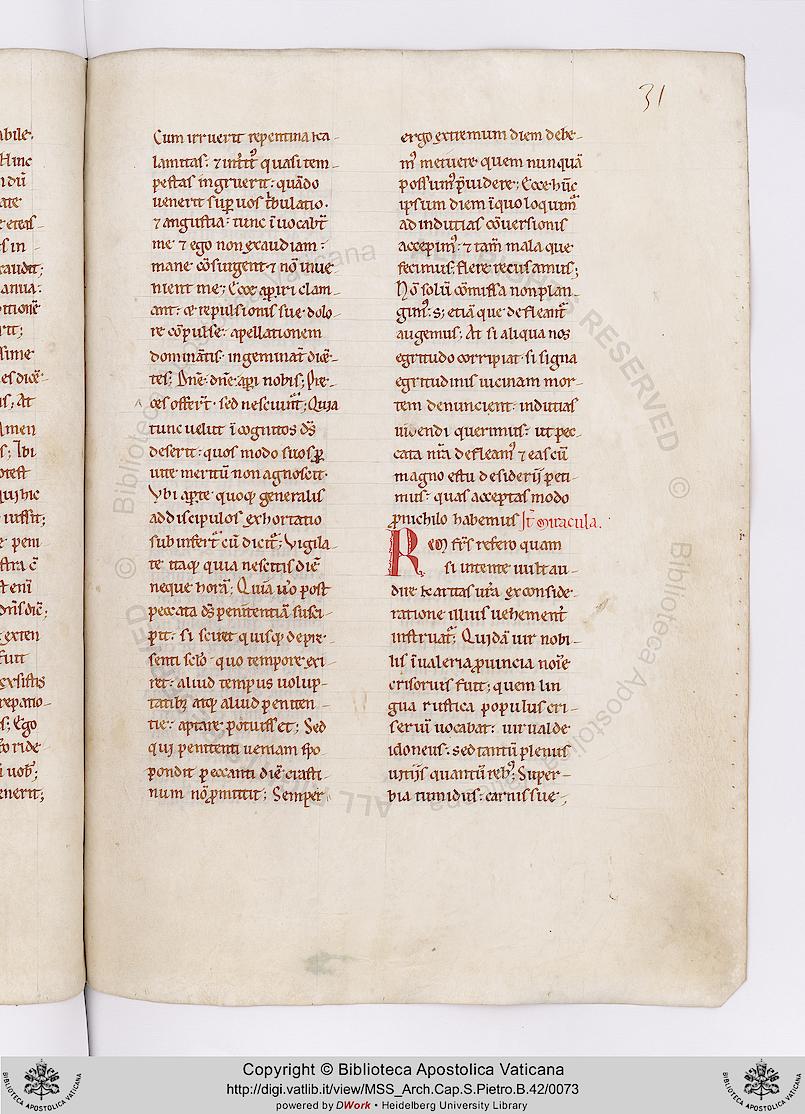 31
abile.
Cum irruerit repentina ka-
lamitas: & int̄it᷒ quasi tem-
pestas ingruerit: quādo
uenerit sup̱ uos tͥbulatio.
& angustia: tunc īuocabt̄
me & ego non exaudiam:
mane cōsurgent & nō inue-
nient me; Ecce ap̱iri clam-
ant: ce repulsionis sue dolo-
re cōpulse: apellationem
dominātis ingeminat̄ dicē-
tes; Dn̄e dn̄e ap̱i nobis; Pre-
ces offert̄ sed nesciunt̄; Quia
tunc uelut īcognitos ds̄
deserit: quos modo suos ꝑ
uite meritū non agnoscit.
Ubi ap̱te quoq; generalis
ad discipulos exhortatio
subinfert̄ cū dicit̄; Vigila-
te itaq; quia nescitis diē
neque horā; Quia uͦo post
peccata ds̄ penitentiā susci-
pit: si sciret quisq; de pre-
senti sclͦo quo tempore exi-
ret: aliud tempus uolup-
tatib; atq; aliud peniten-
tie: aptare potuisset; Sed
qui penitenti ueniam spo-
pondit peccanti diē crasti-
num nō ꝓmittit; Semper
ergo extremum diem debe-
m᷒ metuere quem nunquā
possum᷒ p̄uidere; Ecce hūc
ipsum diem ī quo loquim᷒
ad indutias cōuersionis
accepim᷒: & tam̄ mala que
fecimus: flere recusamus;
Nō solū cōmissa non plan-
gim᷒: s; etiā que defleant̄
augemus; At si aliqua nos
egritudo corripiat si signa
egritudinis uicinam mor-
tem denuncient: indutias
uiuendi querimus: ut pec-
cata nr̄a defleam᷒ & eas cū
magno estu desiderij peti-
mus: quas acceptas modo
ꝓ nichilo habemus It̄ miracula.
Rem fr̄s refero quam
si intente uult au-
dire karitas ur̄a ex conside-
ratione illius uehement̄
instruat̄; Quidā uir nobi-
lis ī ualeria ꝓuincia noīe
crisorius fuit; quem lin
gua rustica populus cri-
seriū uocabat: uir ualde
idoneus: sed tantū plenus
uitijs quantū reb᷒; Super-
bia tumidus: carnis sue
Copyright © Biblioteca Apostolica Vaticana
http://digi.vatlib.it/view/MSS_Arch.Cap.S.Pietro.B.42/0073
powered by DWork • Heidelberg University Library